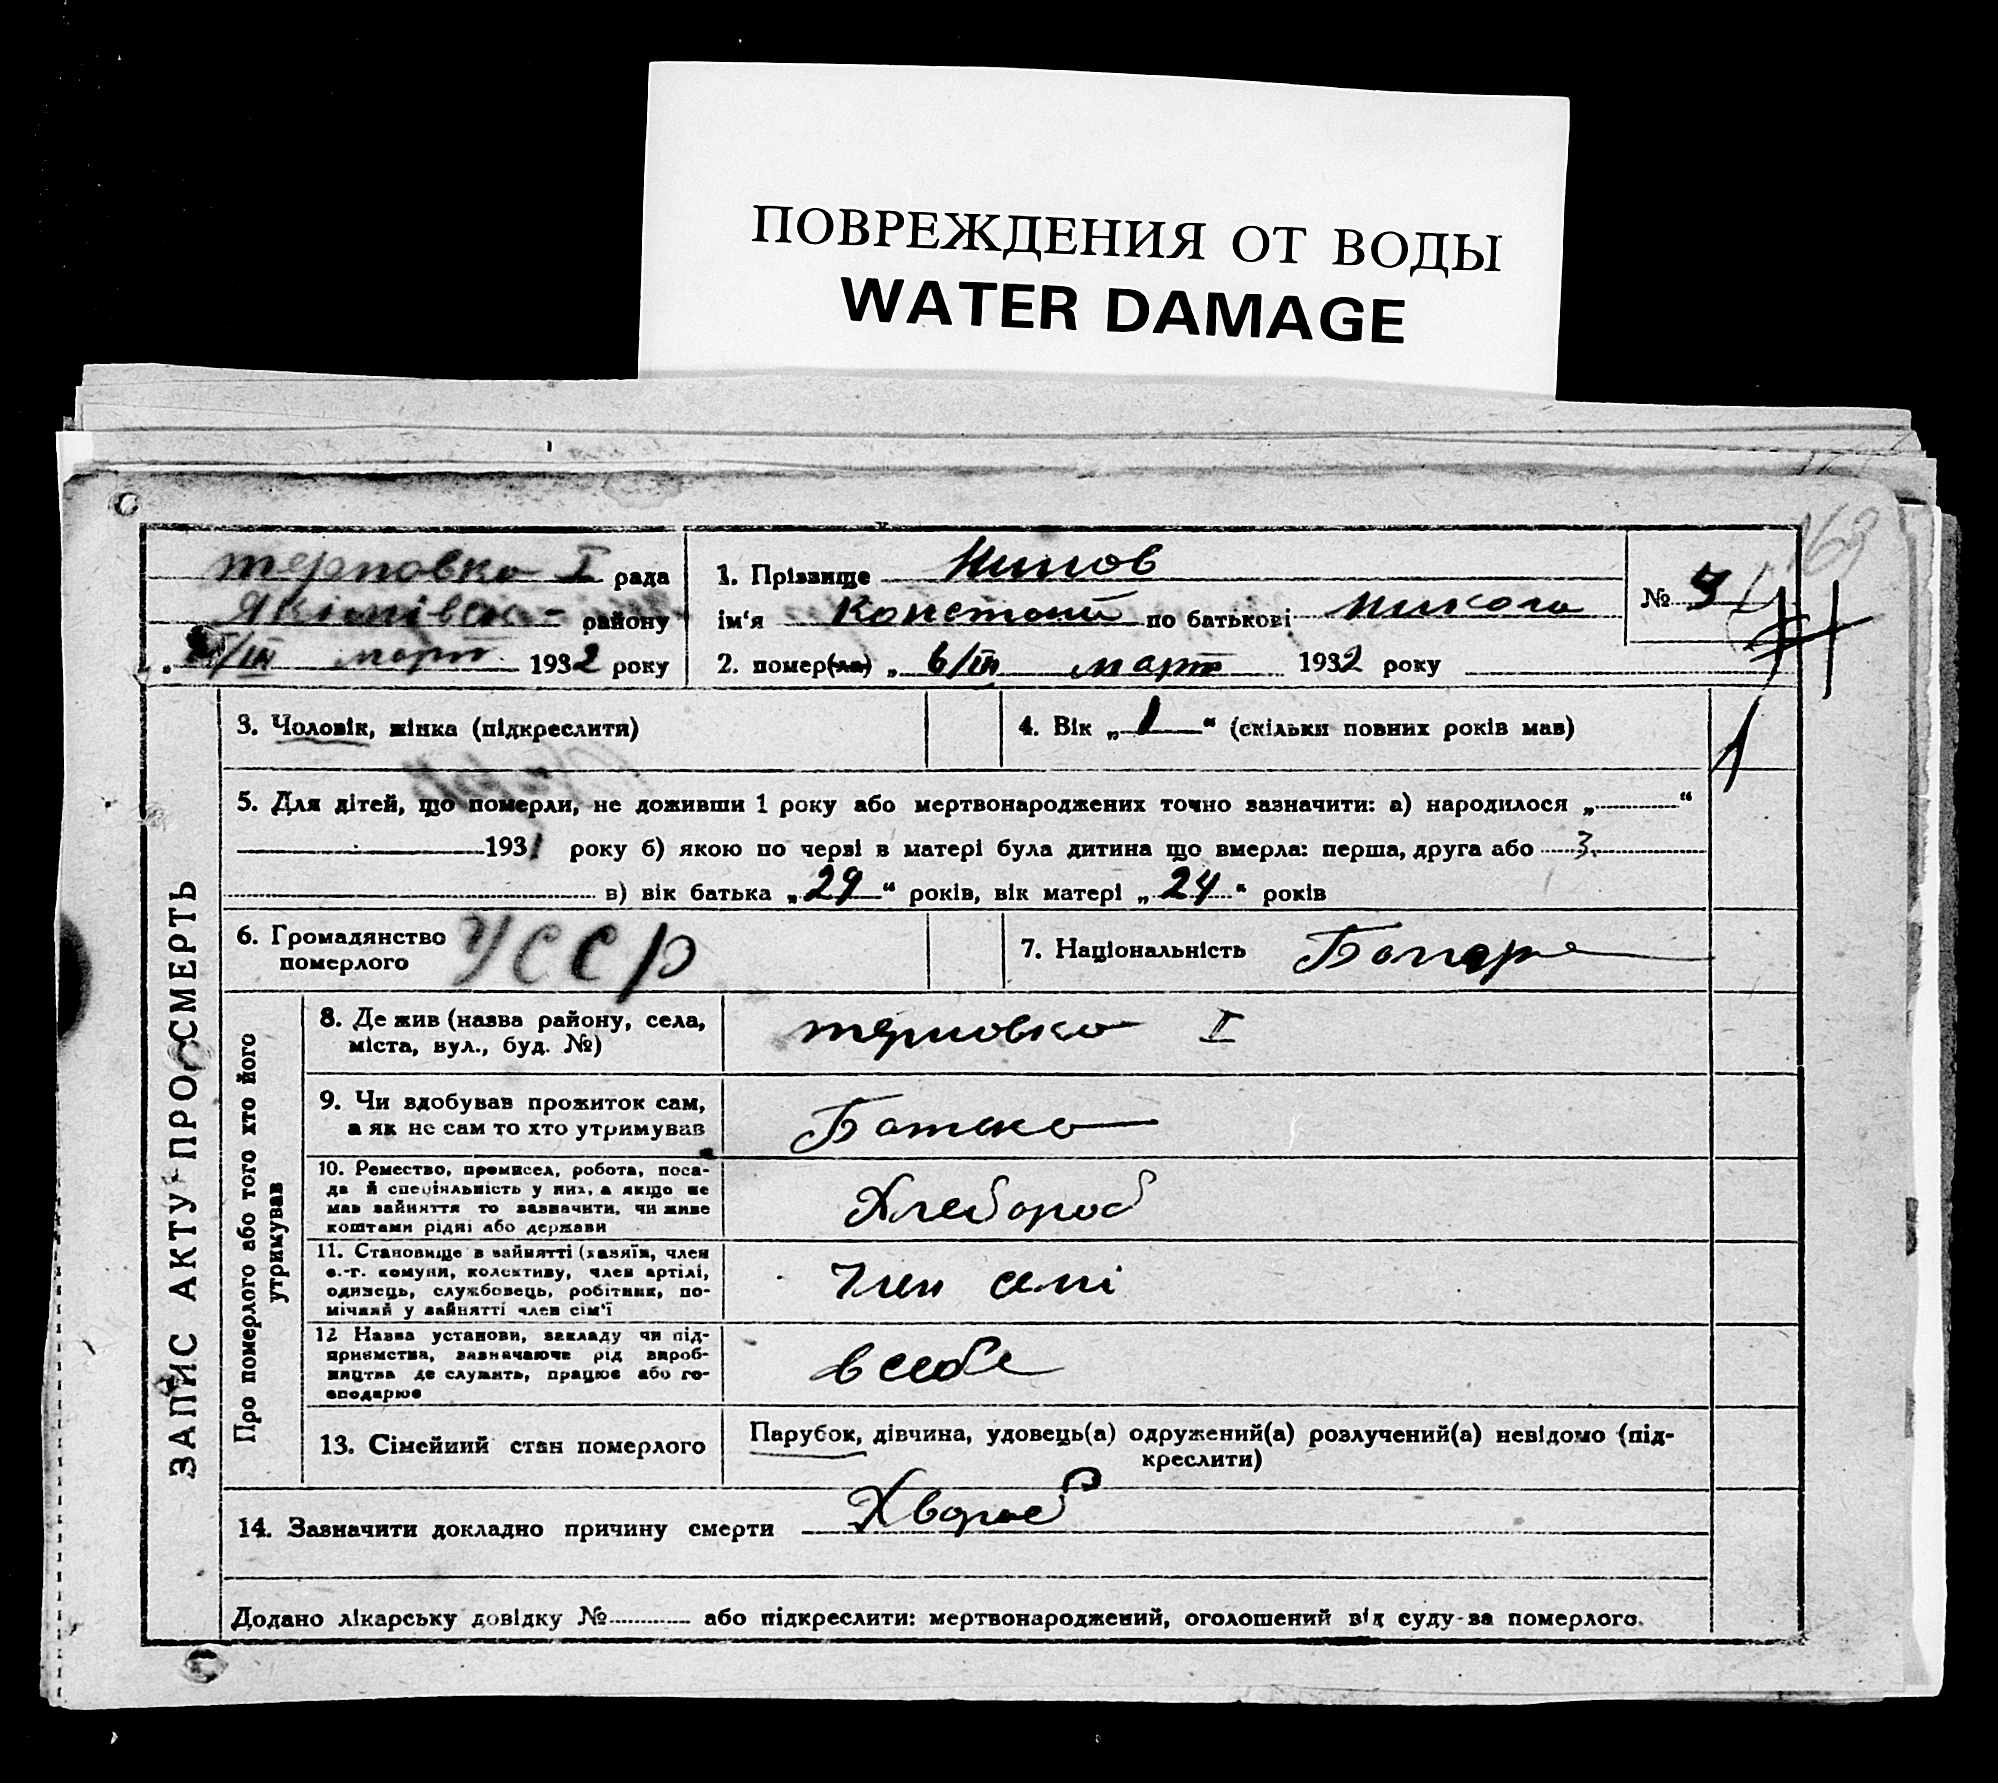 ПОВРЕЖДЕНИЯ ОТ ВОДЫ
WATER DAMAGE
168
терновко I рада
Якімівск - району
/III март 1932 року
1. Прізвище
ім'я Констант по батькові Никола
№
2. помер(ла) „ 6/III март 1932 року
3. Чоловік, жінка (підкреслити)
4. Вік „ 1 “ (скільки повних років мав)
1
5. Для дітей, що померли, не доживши 1 року або мертвонароджених точно зазначити: а) народилося „ “
1931 року б) якою по черві в матері була дитина що вмерла: перша, друга або 3.
в) вік батька „ 29 “ років, вік матері „ 24 “ років
6. Громадянство
померлого
УССР
7. Національність Болгар
8. Де жив (назва району, села,
міста, вул., буд. №)
терновко I
9. Чи вдобував прожиток сам,
а як не сам то хто утримував
Батько
10. Ремество, промисел, робота, поса-
да й спеціяльність у них, а якщо не
мав вайняття то зазначити, чи живе
коштами рідні або держави
Хлебороб
11. Становище в вайнятті (хазяїн, член
с.-г. комуни, колективу, член артілі,
одинець, службовець, робітник, по-
мічний у вайнятті член сім'ї
Член семі
12 Назва установи, закладу чи під-
приємства, зазначаючи рід вироб-
ництва де служить, працює або го-
сподарює
в себе
13. Сімейний стан померлого
Парубок, дівчина, удовець(а) одружений(а) розлучений(а) невідомо (під-
креслити)
14. Зазначити докладно причину смерти Хвороб
Додано лікарську довідку № або підкреслити: мертвонароджений, оголошений від суду за померлого.
ЗАПИС АКТУ ПРО СМЕРТЬ
Про померлого або того хто його
утримував